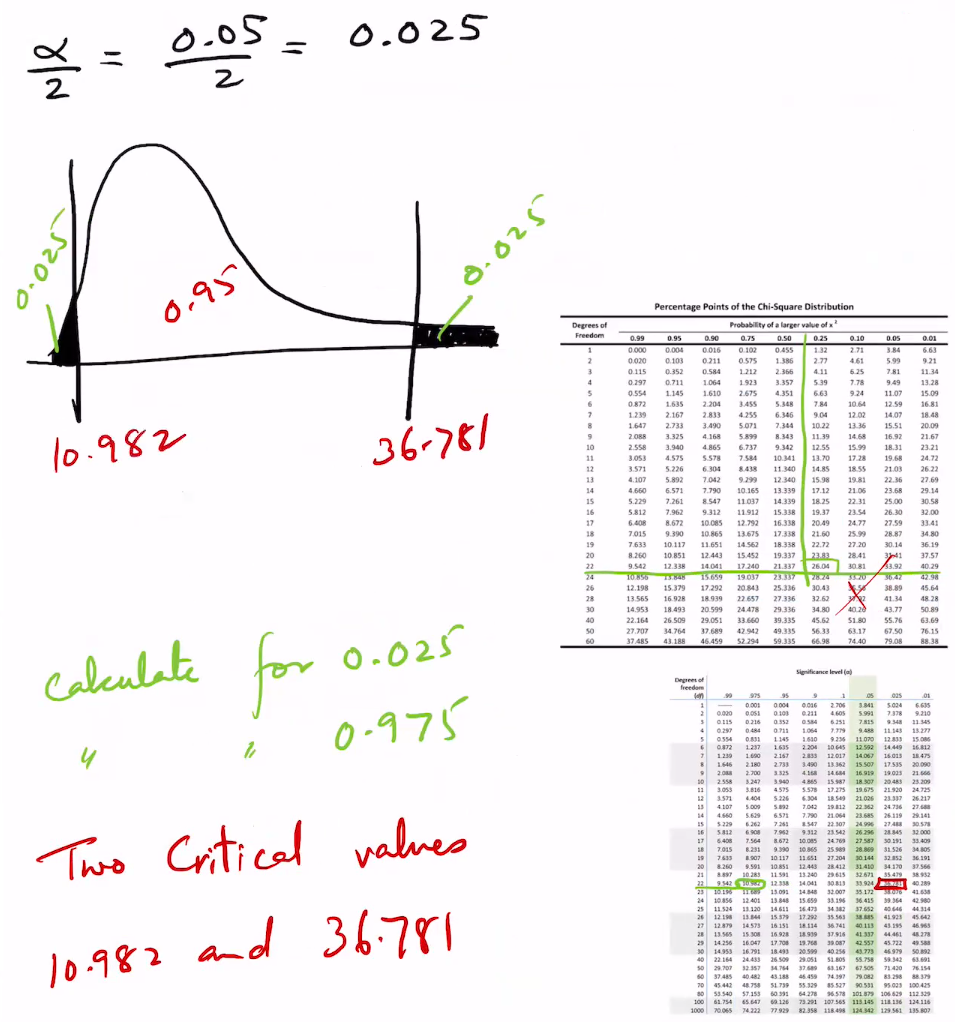 α/2 = 0.05/2 = 0.025
0.025
0.95
0.025
10.982
36.781
Percentage Points of the Chi-Square Distribution
Degrees of Freedom
Probability of a larger value of x ²
0.99 0.95 0.90 0.75 0.50 0.25 0.10 0.05 0.01
1 0.000 0.004 0.016 0.102 0.455 1.32 2.71 3.84 6.63
2 0.020 0.103 0.211 0.575 1.386 2.77 4.61 5.99 9.21
3 0.115 0.352 0.584 1.212 2.366 4.11 6.25 7.81 11.34
4 0.297 0.711 1.064 1.923 3.357 5.39 7.78 9.49 13.28
5 0.554 1.145 1.610 2.675 4.351 6.63 9.24 11.07 15.09
6 0.872 1.635 2.204 3.455 5.348 7.84 10.64 12.59 16.81
7 1.239 2.167 2.833 4.255 6.346 9.04 12.02 14.07 18.48
8 1.647 2.733 3.490 5.071 7.344 10.22 13.36 15.51 20.09
9 2.088 3.325 4.168 5.899 8.343 11.39 14.68 16.92 21.67
10 2.558 3.940 4.865 6.737 9.342 12.55 15.99 18.31 23.21
11 3.053 4.575 5.578 7.584 10.341 13.70 17.28 19.68 24.72
12 3.571 5.226 6.304 8.438 11.340 14.85 18.55 21.03 26.22
13 4.107 5.892 7.042 9.299 12.340 15.98 19.81 22.36 27.69
14 4.660 6.571 7.790 10.165 13.339 17.12 21.06 23.68 29.14
15 5.229 7.261 8.547 11.037 14.339 18.25 22.31 25.00 30.58
16 5.812 7.962 9.312 11.912 15.338 19.37 23.54 26.30 32.00
17 6.408 8.672 10.085 12.792 16.338 20.49 24.77 27.59 33.41
18 7.015 9.390 10.865 13.675 17.338 21.60 25.99 28.87 34.80
19 7.633 10.117 11.651 14.562 18.338 22.72 27.20 30.14 36.19
20 8.260 10.851 12.443 15.452 19.337 23.83 28.41 31.41 37.57
22 9.542 12.338 14.041 17.240 21.337 26.04 30.81 33.92 40.29
24 10.856 13.848 15.659 19.037 23.337 28.24 33.20 36.42 42.98
26 12.198 15.379 17.292 20.843 25.336 30.43 38.89 45.64
28 13.565 16.928 18.939 22.657 27.336 32.62 41.34 48.28
30 14.953 18.493 20.599 24.478 29.336 34.80 40.26 43.77 50.89
40 22.164 26.509 29.051 33.660 39.335 45.62 51.80 55.76 63.69
50 27.707 34.764 37.689 42.942 49.335 56.33 63.17 67.50 76.15
60 37.485 43.188 46.459 52.294 59.335 66.98 74.40 79.08 88.38
calculate for 0.025
" " 0.975
Two Critical values
10.982 and 36.781
Significance level (α)
Degrees of freedom (df)
.99 .975 .95 .9 .1 .05 .025 .01
1 —— 0.001 0.004 0.016 2.706 3.841 5.024 6.635
2 0.020 0.051 0.103 0.211 4.605 5.991 7.378 9.210
3 0.115 0.216 0.352 0.584 6.251 7.815 9.348 11.345
4 0.297 0.484 0.711 1.064 7.779 9.488 11.143 13.277
5 0.554 0.831 1.145 1.610 9.236 11.070 12.833 15.086
6 0.872 1.237 1.635 2.204 10.645 12.592 14.449 16.812
7 1.239 1.690 2.167 2.833 12.017 14.067 16.013 18.475
8 1.646 2.180 2.733 3.490 13.362 15.507 17.535 20.090
9 2.088 2.700 3.325 4.168 14.684 16.919 19.023 21.666
10 2.558 3.247 3.940 4.865 15.987 18.307 20.483 23.209
11 3.053 3.816 4.575 5.578 17.275 19.675 21.920 24.725
12 3.571 4.404 5.226 6.304 18.549 21.026 23.337 26.217
13 4.107 5.009 5.892 7.042 19.812 22.362 24.736 27.688
14 4.660 5.629 6.571 7.790 21.064 23.685 26.119 29.141
15 5.229 6.262 7.261 8.547 22.307 24.996 27.488 30.578
16 5.812 6.908 7.962 9.312 23.542 26.296 28.845 32.000
17 6.408 7.564 8.672 10.085 24.769 27.587 30.191 33.409
18 7.015 8.231 9.390 10.865 25.989 28.869 31.526 34.805
19 7.633 8.907 10.117 11.651 27.204 30.144 32.852 36.191
20 8.260 9.591 10.851 12.443 28.412 31.410 34.170 37.566
21 8.897 10.283 11.591 13.240 29.615 32.671 35.479 38.932
22 9.542 10.982 12.338 14.041 30.813 33.924 36.781 40.289
23 10.196 11.689 13.091 14.848 32.007 35.172 38.076 41.638
24 10.856 12.401 13.848 15.659 33.196 36.415 39.364 42.980
25 11.524 13.120 14.611 16.473 34.382 37.652 40.646 44.314
26 12.198 13.844 15.379 17.292 35.563 38.885 41.923 45.642
27 12.879 14.573 16.151 18.114 36.741 40.113 43.195 46.963
28 13.565 15.308 16.928 18.939 37.916 41.337 44.461 48.278
29 14.256 16.047 17.708 19.768 39.087 42.557 45.722 49.588
30 14.953 16.791 18.493 20.599 40.256 43.773 46.979 50.892
40 22.164 24.433 26.509 29.051 51.805 55.758 59.342 63.691
50 29.707 32.357 34.764 37.689 63.167 67.505 71.420 76.154
60 37.485 40.482 43.188 46.459 74.397 79.082 83.298 88.379
70 45.442 48.758 51.739 55.329 85.527 90.531 95.023 100.425
80 53.540 57.153 60.391 64.278 96.578 101.879 106.629 112.329
100 61.754 65.647 69.126 73.291 107.565 113.145 118.136 124.116
1000 70.065 74.222 77.929 82.358 118.498 124.342 129.561 135.807